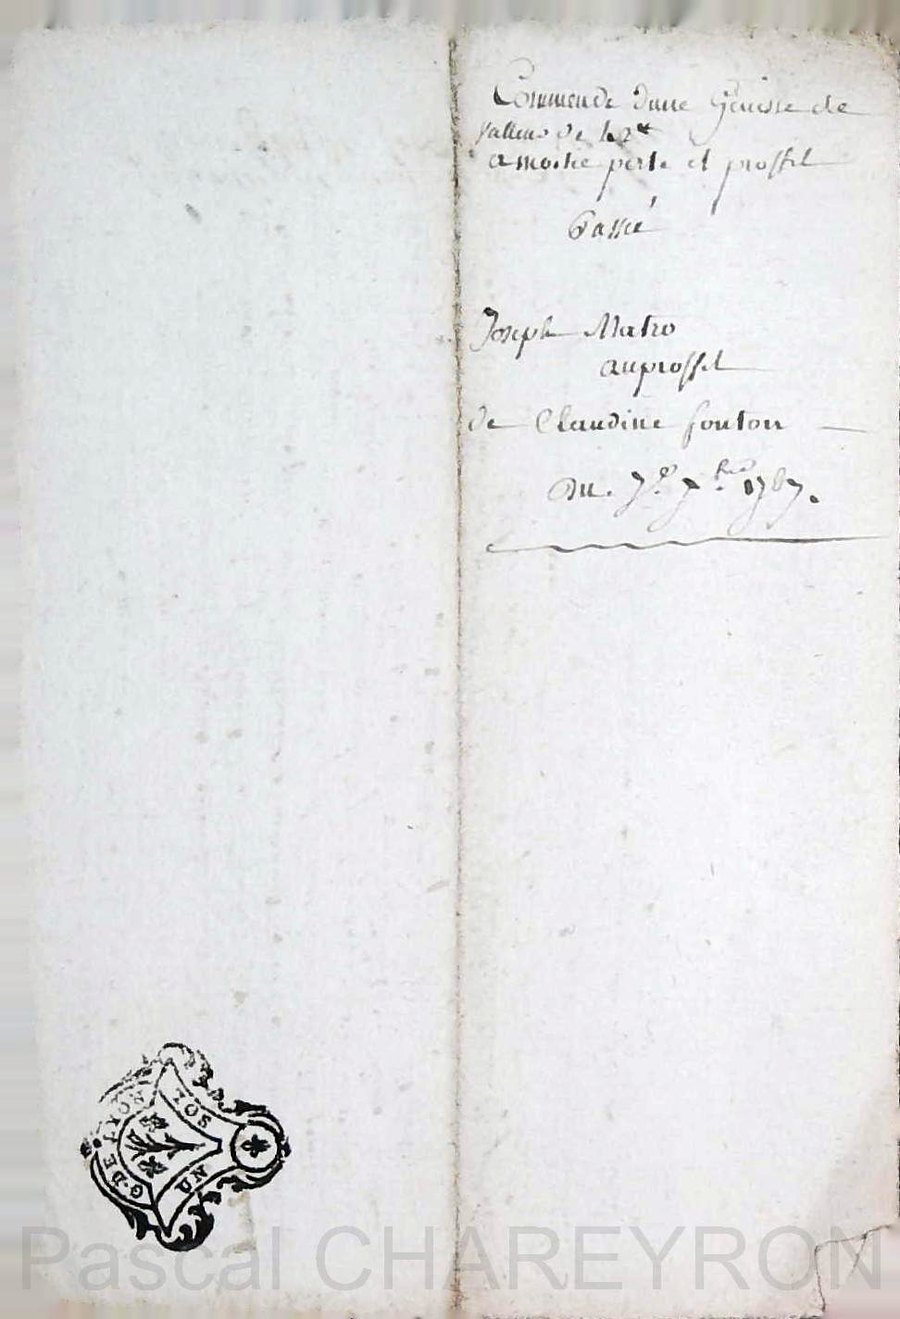 Commende dune Genisse de
valleur de 42 ₶
a moitie perte et proffit
Passé
Joseph Matro
au proffit
de Claudine fonton
Du. 7.e 7.bre 1787.
SOL
UN
G. DE LYON
Pascal CHAREYRON